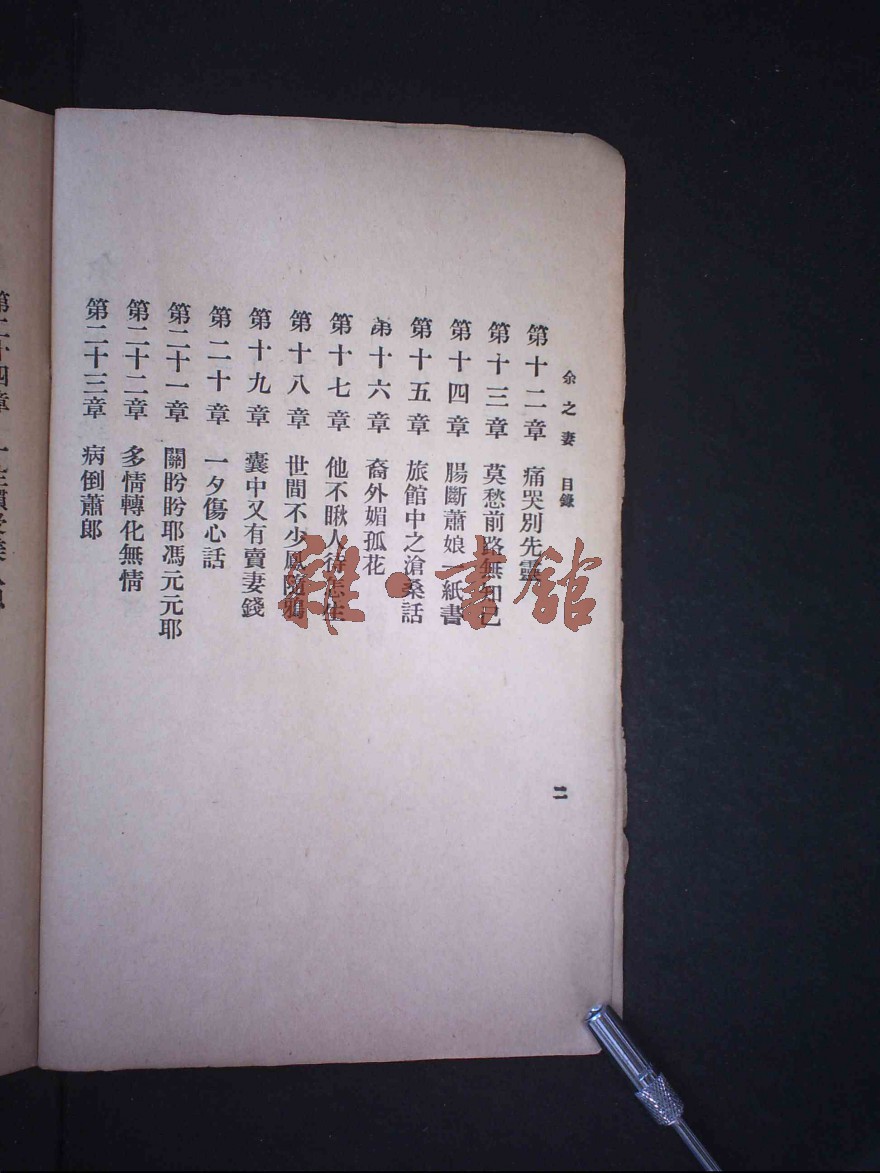 余之妻 目錄
第十二章 痛哭別先靈
第十三章 莫愁前路無知己
第十四章 腸斷蕭娘一紙書
第十五章 旅館中之滄桑話
第十六章 裔外媚孤花
第十七章 他不瞅人待怎生
第十八章 世間不少鳳隨鴉
第十九章 囊中又有賣妻錢
第二十章 一夕傷心話
第二十一章 關盼盼耶馮元元耶
第二十二章 多情轉化無情
第二十三章 病倒蕭郎
二
第二十四章
雜·書館